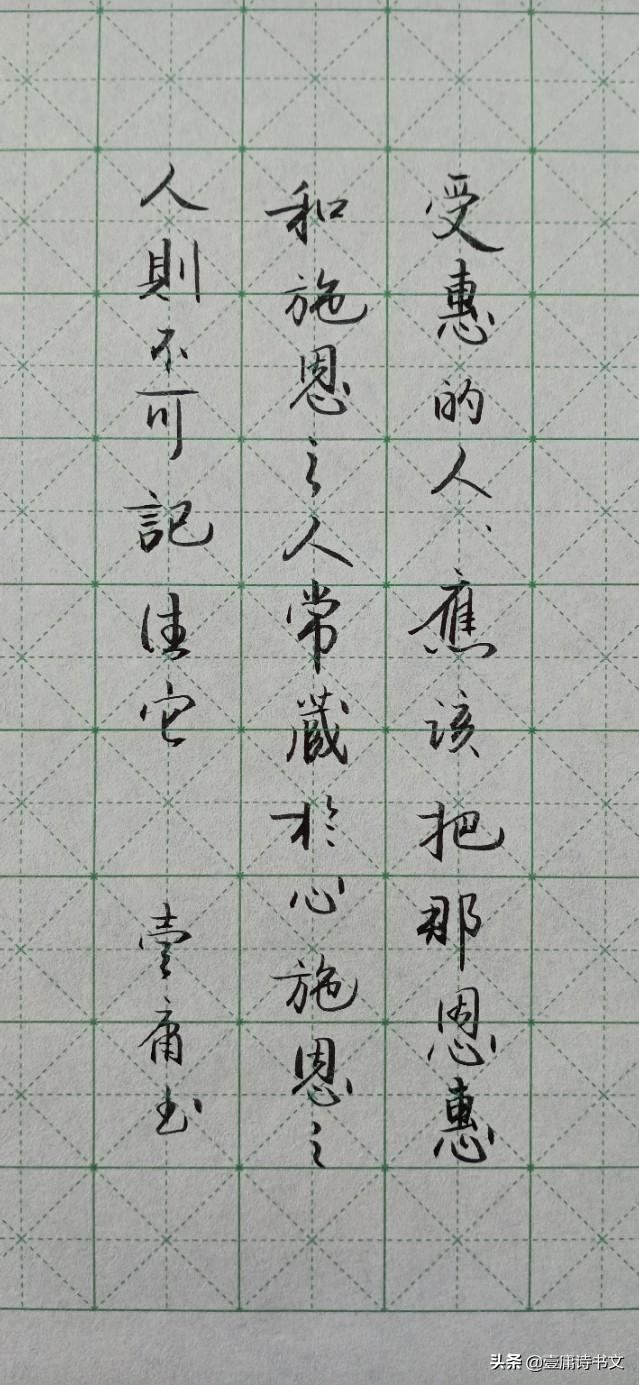 受惠的人、應该把那恩惠
和施恩之人常蔵於心施恩之
人則不可記住它
壹庸书
头条 @壹庸诗书文